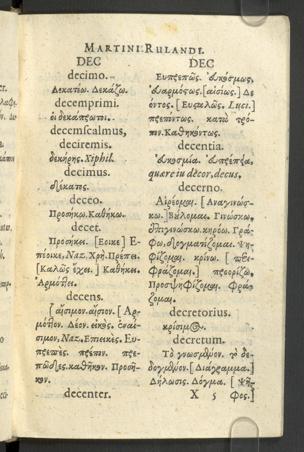 MARTINI RULANDI.
DEC
decimo.
Δεκατίω. Δεκάζω.
decemprimi.
οἱ δεκάπρωτοι.
decemscalmus,
deciremis.
δεκήρης. Xiphil.
decimus.
δέκατος.
deceo.
Προσήκω. Καθήκω.
decet.
Προσήκει. [Εοικε] Ε-
πέοικε, Ναζ. Χρή. Πρέπει.
[Καλῶς ἔχει. [Καθήκει.
Ἁρμόττει.
decens.
[αἴσιμον. αἴσιον. [Αρ-
μόττον. Δέον. εἰκός.
Ναζ. Επιεικές. Ευ-
πρεπές. πρέπον.
καθῆκον. Προσῆ-
κον.
decenter.
DEC
Ευπρεπῶς. ἐυκόσμως.
ἐυαρμόστως. [αἰσίως.] Δε
όντος. [Ευσχαλῶς. Luci.]
πρεπόντως. κατὰ τρό-
πον. Καθηκόντως.
decentia.
ἐυκοσμία. ἐυπρέπεια,
quære in decor, decus,
decerno.
Αἱρέομαι. [Αναγινώσ-
κω. Βούλομαι. Γινώσκω,
ἐπιγινώσκω. κηρόω. Γρά-
φω, δογματίζομαι. Ψη-
φίζομαι. κρίνω. [
φράζομαι.] προορίζω,
Προσψηφίζομαι. Φρά-
ζομαι.
decretorius.
κρίσιμος.
decretum.
Τὸ γνωσμένον. τὸ δε-
δογμένον. [Διάγραμμα.]
Δήλωσις. Δόγμα. [Ψή-
X 5 φος.]